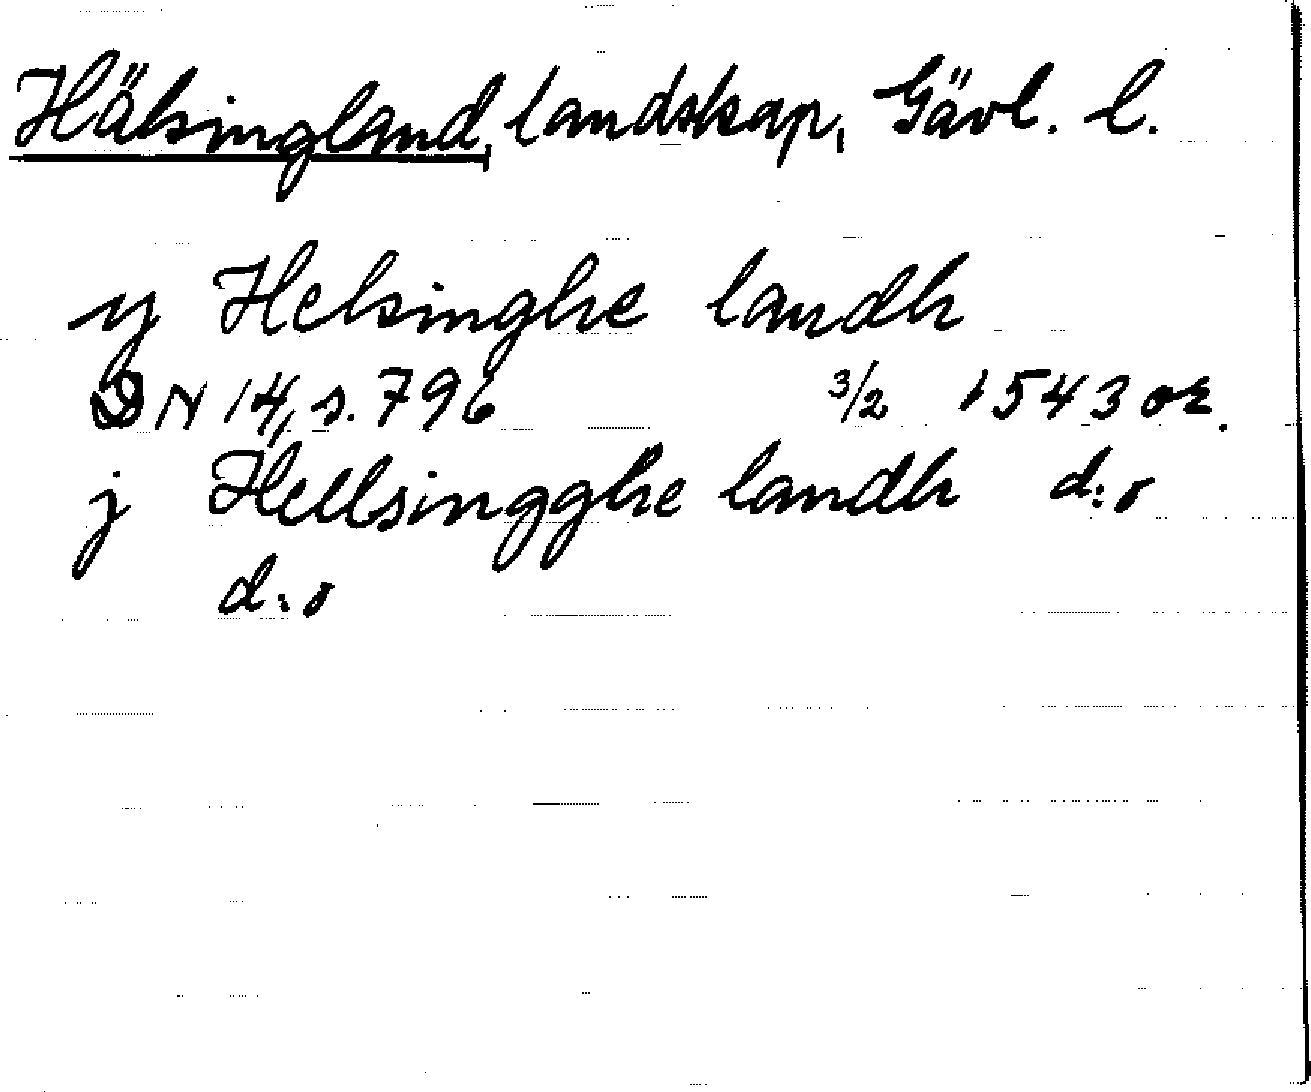 Hälsingland, landskap, Gävl. l.
y Helsinghe landh
DN 14, s. 796 3/2 1543 or.
j Hellsingghe landh d:o
d:o